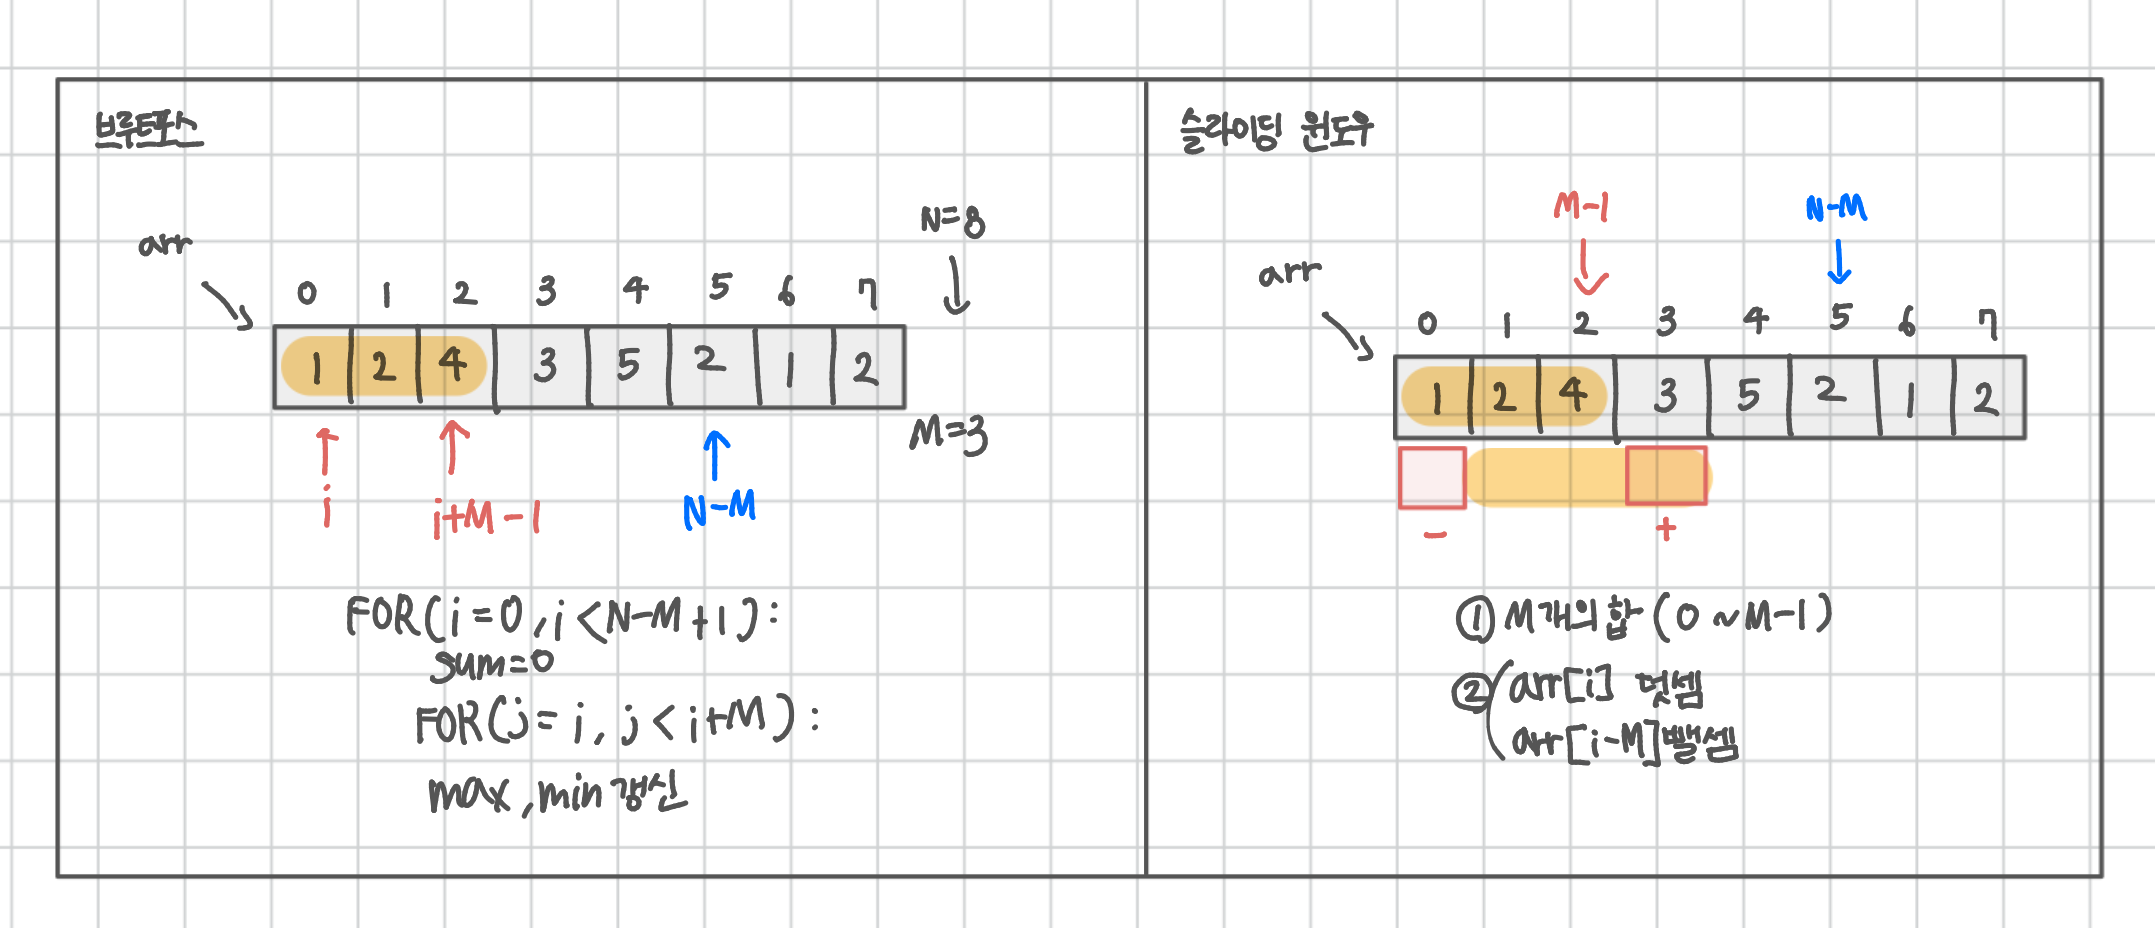 브루트포스
N=8
arr
0 1 2 3 4 5 6 7
1 2 4 3 5 2 1 2
M=3
i
i+M-1
N-M
FOR(i=0, i<N-M+1):
sum=0
FOR(j=i, j<i+M):
max, min 갱신
슬라이딩 윈도우
M-1
N-M
arr
0 1 2 3 4 5 6 7
1 2 4 3 5 2 1 2
- +
① M개의 합 (0~M-1)
② arr[i] 덧셈
arr[i-M] 뺄셈